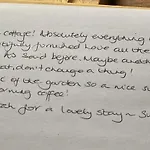 cottage! Absolutely everything
furnished have all the
As said before. Maybe another
don't change a thing!
of the garden so a nice
morning coffee!
for a lovely stay ~